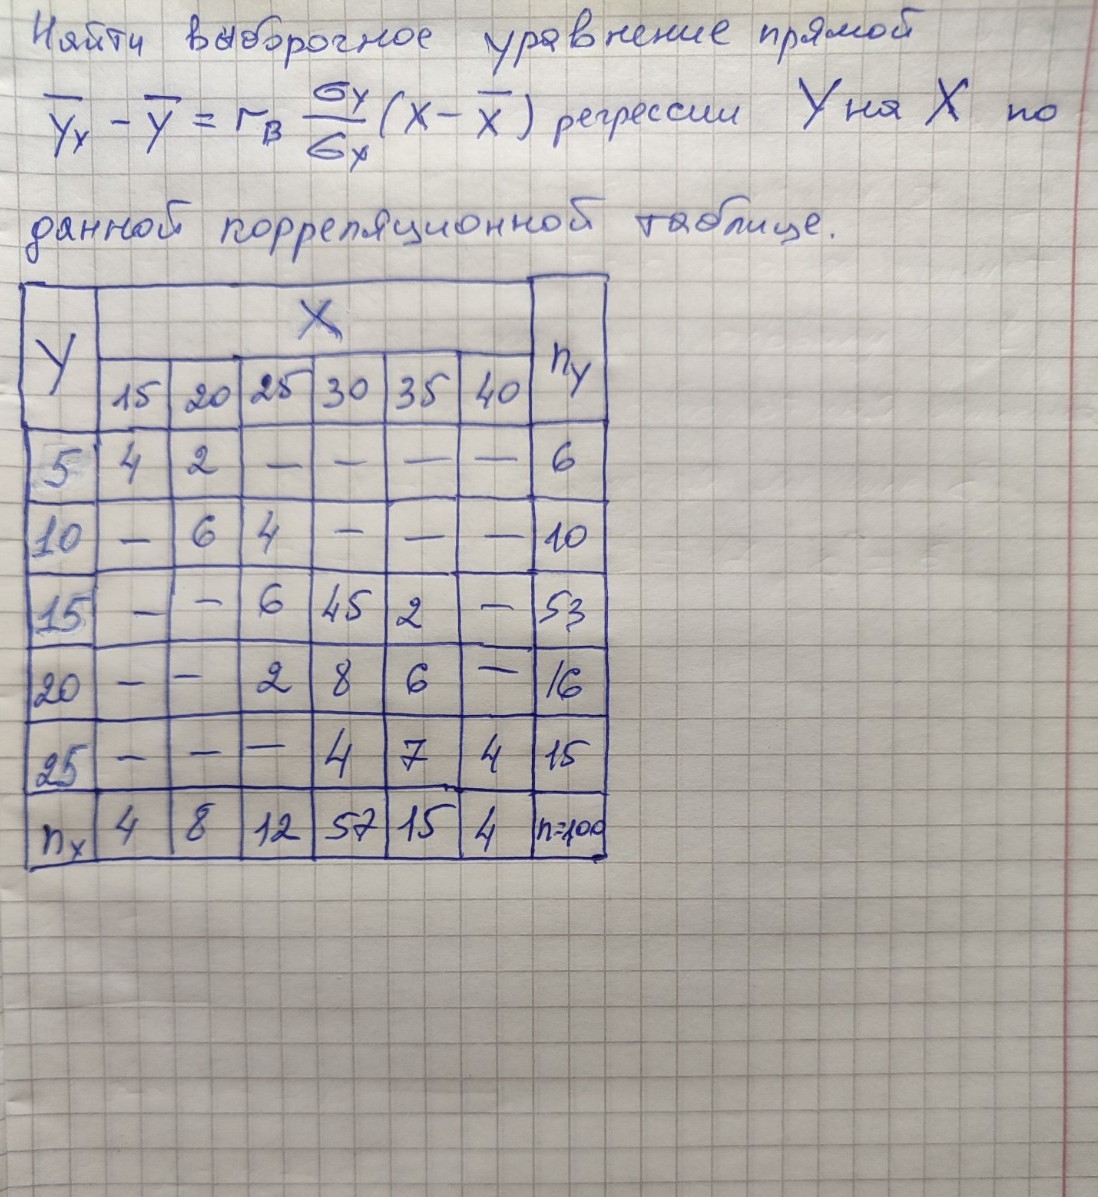 Найти выборочное уравнение прямой
y̅ₓ - y̅ = rв σy/σx (x - x̅) регрессии Y на X по
данной корреляционной таблице.
Y X nY
15 20 25 30 35 40
5 4 2 — — — — 6
10 — 6 4 — — — 10
15 — — 6 45 2 — 53
20 — — 2 8 6 — 16
25 — — — 4 7 4 15
nx 4 8 12 57 15 4 n=100